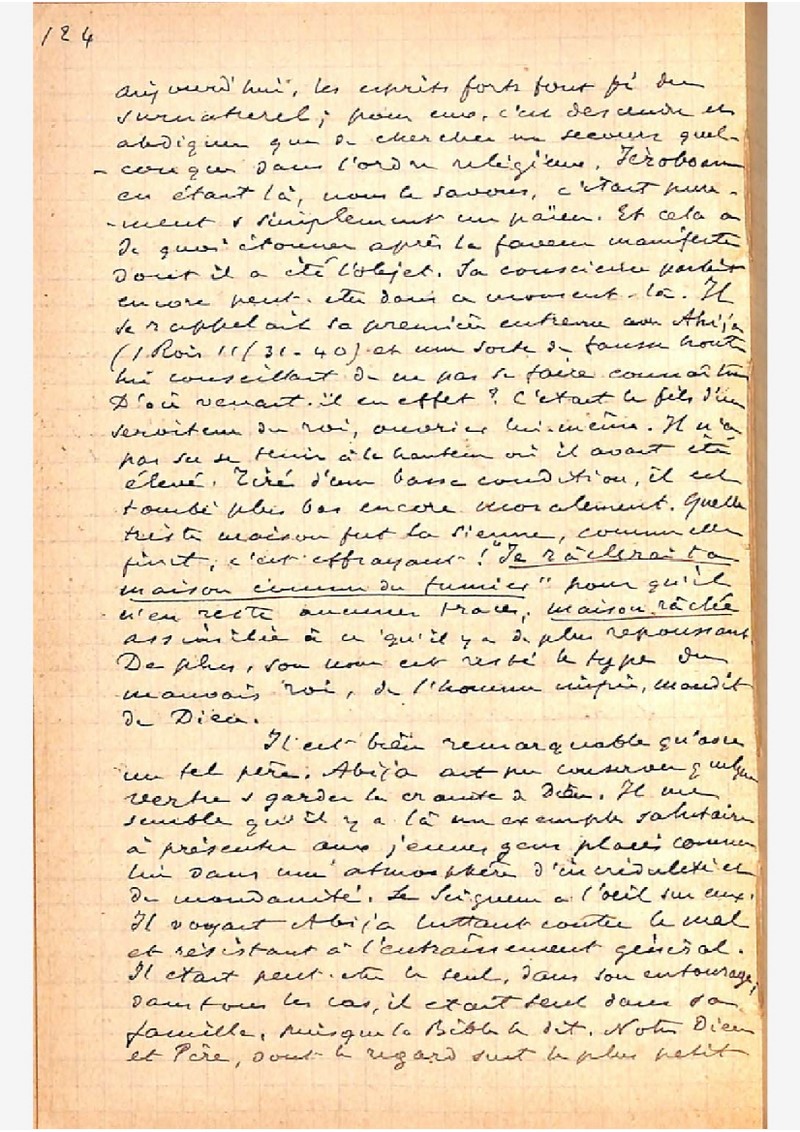 124
aujourd'hui, les esprits forts font fi du
surnaturel ; pour eux, c'est descendre et
abdiquer que de chercher un secours quel-
-conque dans l'ordre religieux. Jéroboam
en étant là, nous le savons, c'était pure-
-ment & simplement un païen. Et cela a
de quoi étonner après la faveur manifeste
dont il a été l'objet. Sa conscience parlait
encore peut-être dans ce moment-là. Il
se rappelait sa première entrevue avec Ahija
(1 Rois 11/31-40) et une sorte de fausse honte
lui conseillait de ne pas se faire connaître
D'où venait-il en effet ? C'était le fils d'un
serviteur du roi, ouvrier lui-même. Il n'a
pas su se tenir à la hauteur où il avait été
élevé. Tiré d'une basse condition, il est
tombé plus bas encore moralement. Quelle
triste maison fut la sienne, comme elle
finit, c'est effrayant ! "Je râclerai ta
maison comme du fumier" pour qu'il
n'en reste aucune trace, maison râclée
assimilée à ce qu'il y a de plus repoussant
De plus, son nom est resté le type du
mauvais roi, de l'homme impie, maudit
de Dieu.
Il est bien remarquable qu'avec
un tel père, Abija ait pu conserver quelque
vertu & garder la crainte de Dieu. Il me
semble qu'il y a là un exemple salutaire
à présenter aux jeunes gens placés comme
lui dans une atmosphère d'incrédulité et
de mondanité. Le Seigneur a l'oeil sur eux.
Il voyait Abija luttant contre le mal
et résistant à l'entraînement général.
Il était peut-être le seul, dans son entourage,
dans tous les cas, il était seul dans sa
famille, puisque la Bible le dit. Notre Dieu
et Père, dont le regard suit le plus petit